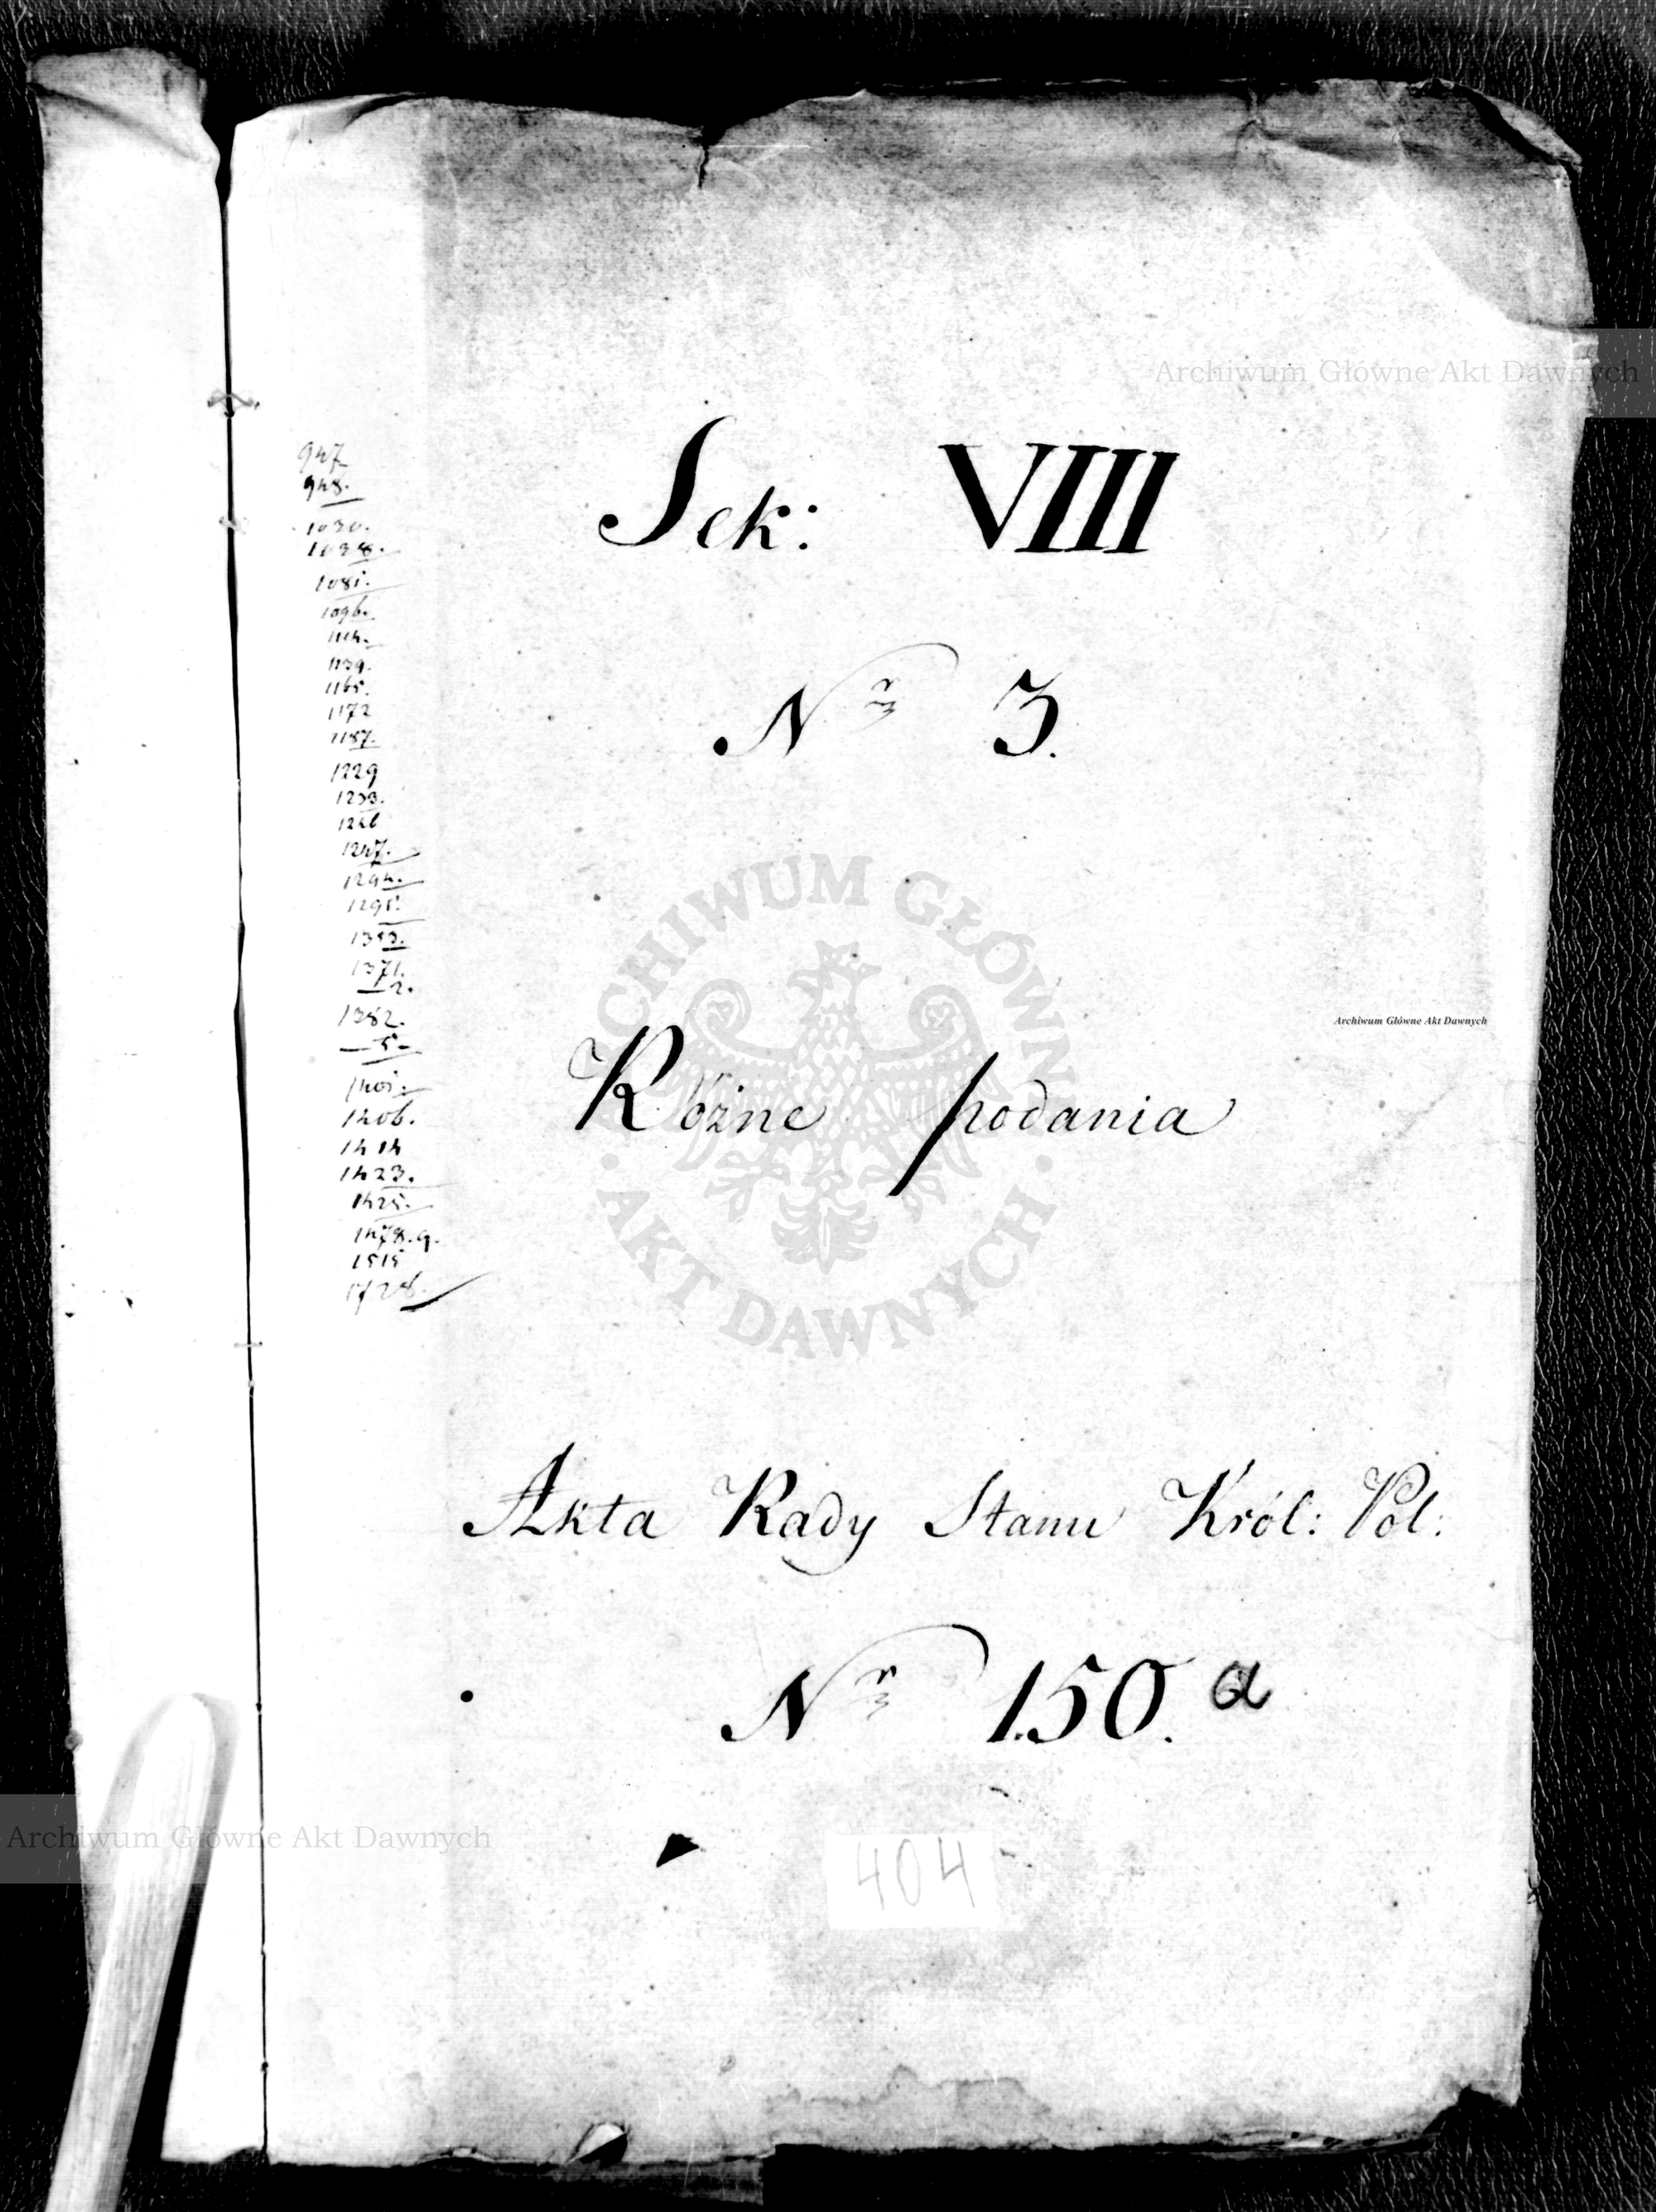 947
948.
1030.
1038.
1081.
1096.
1114.
1139.
1165.
1172
1187.
1229
1233.
1247.
1294.
1295.
1353.
1371.
— 2.
1382.
— 5 —
1401.
1406.
1414
1423.
1425.
1478.9.
1515
1728.
Sek: VIII
Nr 3.
Różne podania
Akta Rady Stanu Król: Pol:
Nr 150. a
404
Archiwum Główne Akt Dawnych
ARCHIWUM GŁÓWNE
· AKT DAWNYCH ·
Archiwum Główne Akt Dawnych
Archiwum Główne Akt Dawnych